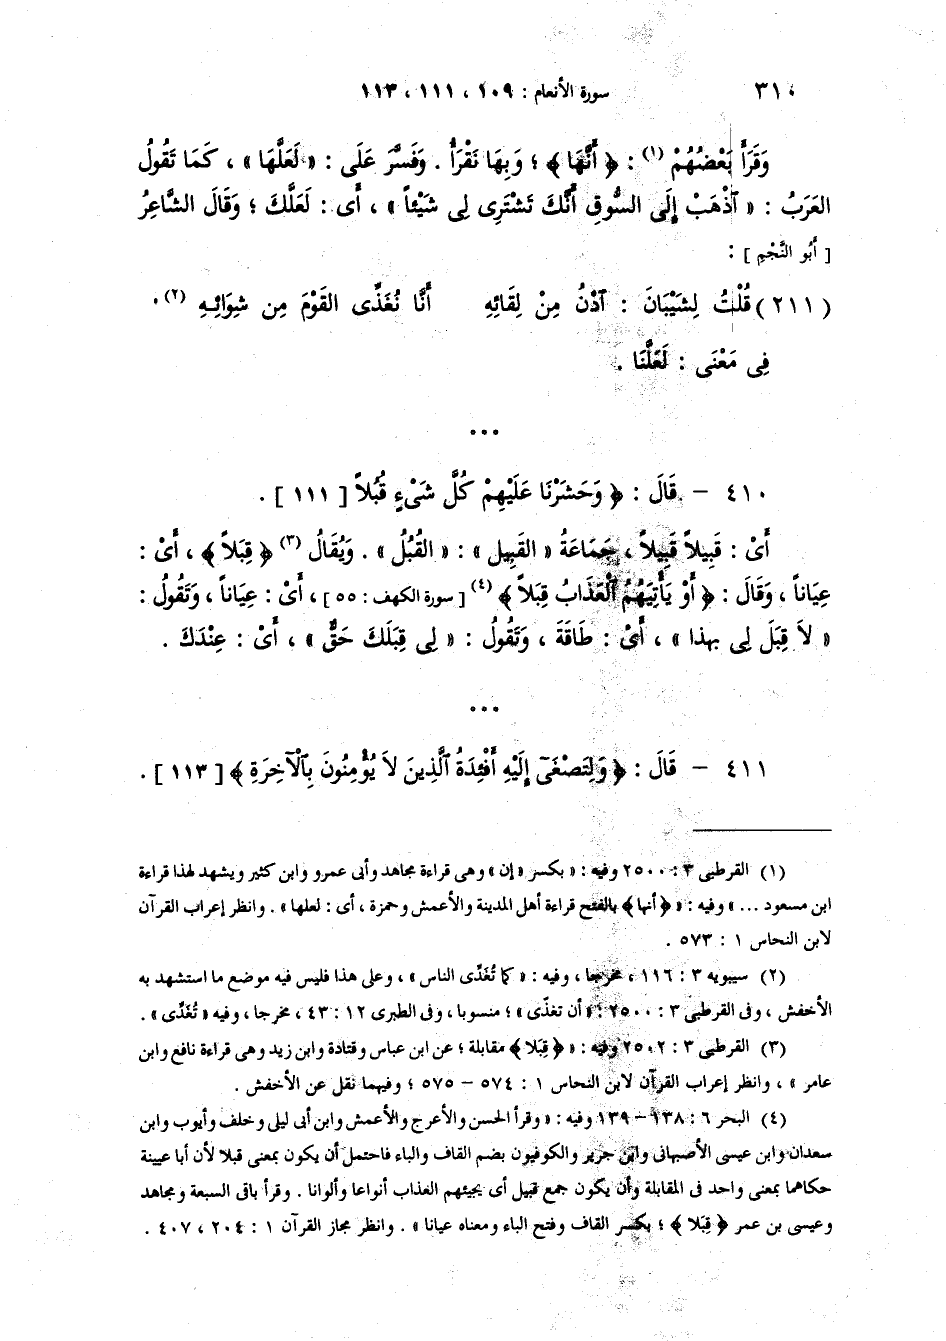 ٣١٠
سورة الأنعام : ١٠٩ ، ١١١ ، ١١٣
وَقَرَأَ بَعْضُهُمْ (١) : ﴿ أَنَّهَا ﴾ ؛ وَبِهَا نَقْرَأُ . وَفَسَّرَ عَلَى : « لَعَلَّهَا » ، كَمَا تَقُولُ
العَرَبُ : « ٱذْهَبْ إِلَى السُّوقِ أَنَّكَ تَشْتَرِى لِى شَيْئاً » ، أَى : لَعَلَّكَ ؛ وَقَالَ الشَّاعِرُ
[ أَبُو النَّجْمِ ] :
(٢١١) قُلْتُ لِشَيْبَانَ : ٱدْنُ مِنْ لِقَائِهِ أَنَّا نُغَذِّى القَوْمَ مِن شِوَائِهِ (٢) .
فِى مَعْنَى : لَعَلَّنَا .
...
٤١٠ – قَالَ : ﴿ وَحَشَرْنَا عَلَيْهِمْ كُلَّ شَىْءٍ قُبُلاً [ ١١١ ] .
أَىْ : قَبِيلاً قَبِيلاً ، جَمَاعَةُ « القَبِيل » : « القُبُلُ » . وَيُقَالُ (٣) ﴿ قِبَلاً ﴾ ، أَىْ :
عِيَاناً ، وَقَالَ : ﴿ أَوْ يَأْتِيَهُمُ ٱلْعَذَابُ قِبَلاً ﴾ (٤) [ سورة الكهف : ٥٥ ] ، أَىْ : عِيَاناً ، وَتَقُولُ :
« لاَ قِبَلَ لِى بهذا » ، أَىْ : طَاقَةَ ، وَتَقُولُ : « لِى قِبَلَكَ حَقٌّ » ، أَىْ : عِنْدَكَ .
...
٤١١ – قَالَ : ﴿ وَلِتَصْغَىٰٓ إِلَيْهِ أَفْئِدَةُ ٱلَّذِينَ لاَ يُؤْمِنُونَ بِٱلْآخِرَةِ ﴾ [ ١١٣ ] .
(١) القرطبى ٣ : ٢٥٠٠ وفيه : « بكسر « إن » وهى قراءة مجاهد وأبى عمرو وابن كثير ويشهد لهذا قراءة
ابن مسعود ... » وفيه : « ﴿ أنها ﴾ بالفتح قراءة أهل المدينة والأعمش وحمزة ، أى : لعلها » . وانظر إعراب القرآن
لابن النحاس ١ : ٥٧٣ .
(٢) سيبويه ٣ : ١١٦ ، مخرجا ، وفيه : « كما تُغَدِّى الناس » ، وعلى هذا فليس فيه موضع ما استشهد به
الأخفش ، وفى القرطبى ٣ : ٢٥٠٠ : « أن تغذّى » ؛ منسوبا ، وفى الطبرى ١٢ : ٤٣ ، مخرجا ، وفيه « تُغَدِّى » .
(٣) القرطبى ٣ : ٢٥٠٢ وفيه : « ﴿ قِبَلا ﴾ مقابلة ؛ عن ابن عباس وقتادة وابن زيد وهى قراءة نافع وابن
عامر » ، وانظر إعراب القرآن لابن النحاس ١ : ٥٧٤ – ٥٧٥ ؛ وفيهما نقل عن الأخفش .
(٤) البحر ٦ : ١٣٨ – ١٣٩ وفيه : « وقرأ الحسن والأعرج والأعمش وابن أبى ليلى وخلف وأيوب وابن
سعدان وابن عيسى الأصبهانى وابن جرير والكوفيون بضم القاف والباء فاحتمل أن يكون بمعنى قبلا لأن أبا عبيدة
حكاهما بمعنى واحد فى المقابلة وأن يكون جمع قبيل أى يجيئهم العذاب أنواعا وألوانا . وقرأ باقى السبعة ومجاهد
وعيسى بن عمر ﴿ قِبَلا ﴾ ؛ بكسر القاف وفتح الباء ومعناه عيانا » . وانظر مجاز القرآن ١ : ٢٠٤ ، ٤٠٧ .